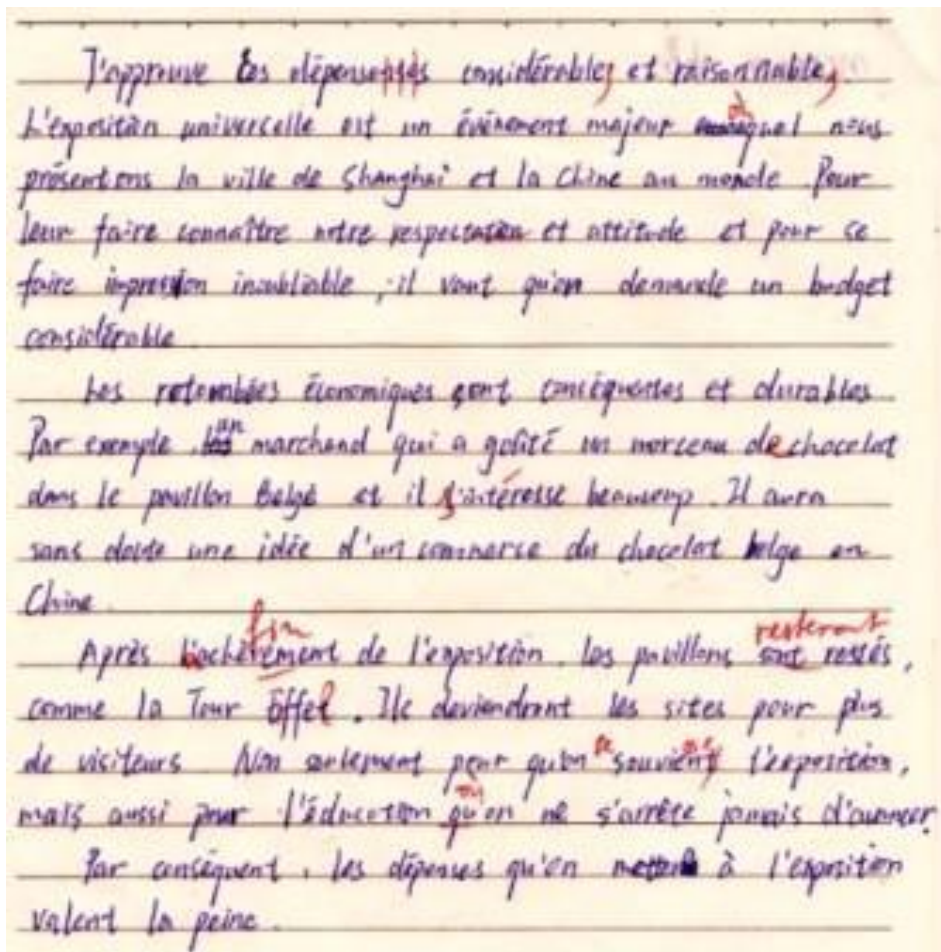 J'approuve les dépenses considérables et raisonnables,
L'exposition universelle est un événement majeur où nous
présentons la ville de Shanghai et la Chine au monde. Pour
leur faire connaître notre respectation et attitude et pour ce
faire impression inoubliable, il vaut qu'on demande un budget
considérable.
Les retombées économiques sont conséquentes et durables.
Par exemple, un marchand qui a goûté un morceau de chocolat
dans le pavillon Belge et il s'intéresse beaucoup. Il aura
sans doute une idée d'un commerce du chocolat belge en
Chine.
fin
resteront
Après l'achèvement de l'exposition, les pavillons sont restés,
comme la Tour Eiffel. Ils deviendront les sites pour plus
de visiteurs. Non seulement pour qu'on se souvienne l'exposition,
où
mais aussi pour l'éducation qu'on ne s'arrête jamais d'avancer.
Par conséquent, les dépenses qu'on à l'exposition
valent la peine.